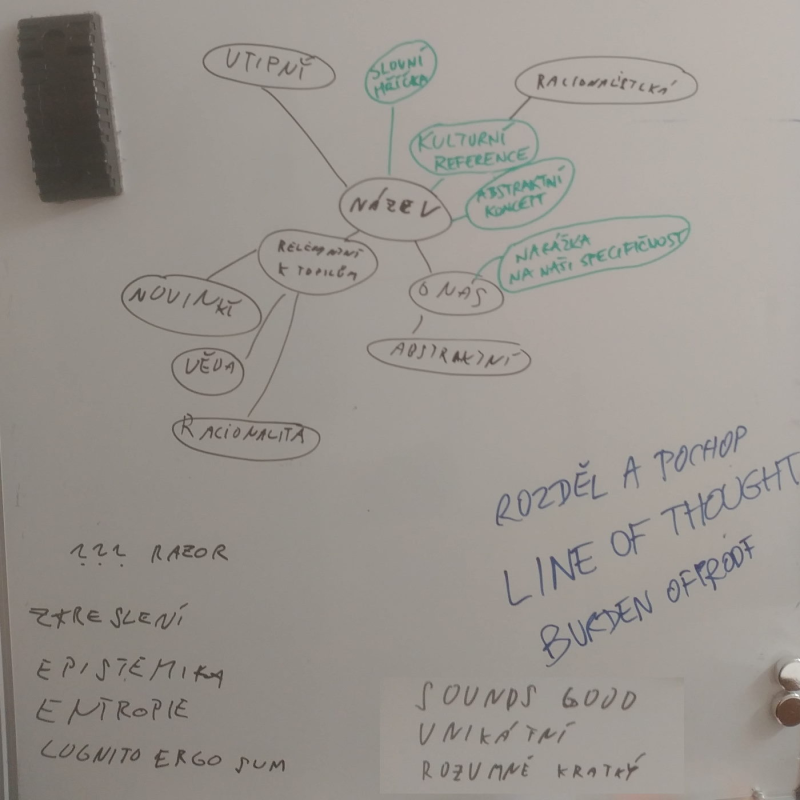 VTIPNÝ
SLOVNÍ
HŘÍČKA
RACIONALISTICKÁ
KULTURNÍ
REFERENCE
NÁZEV
ABSTRAKTNÍ
KONCEPT
NARÁŽKA
NA NAŠI SPECIFIČNOST
RELEVANTNÍ
K TOPICŮM
O NÁS
NOVINKY
ABSTRAKTNÍ
VĚDA
RACIONALITA
ROZDĚL A POCHOP
LINE OF THOUGHT
BURDEN OF PROOF
??? RAZOR
ZKRESLENÍ
EPISTEMIKA
ENTROPIE
COGNITO ERGO SUM
SOUNDS GOOD
UNIKÁTNÍ
ROZUMNĚ KRÁTKÝ